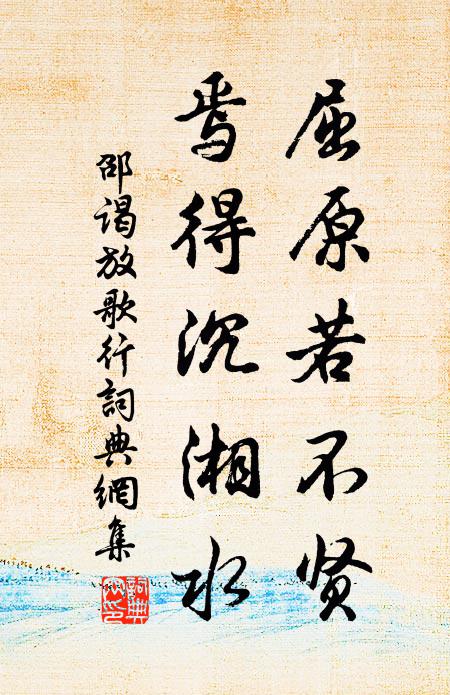 屈原若不贤
焉得沉湘水
邵谒放歌行詞典網集